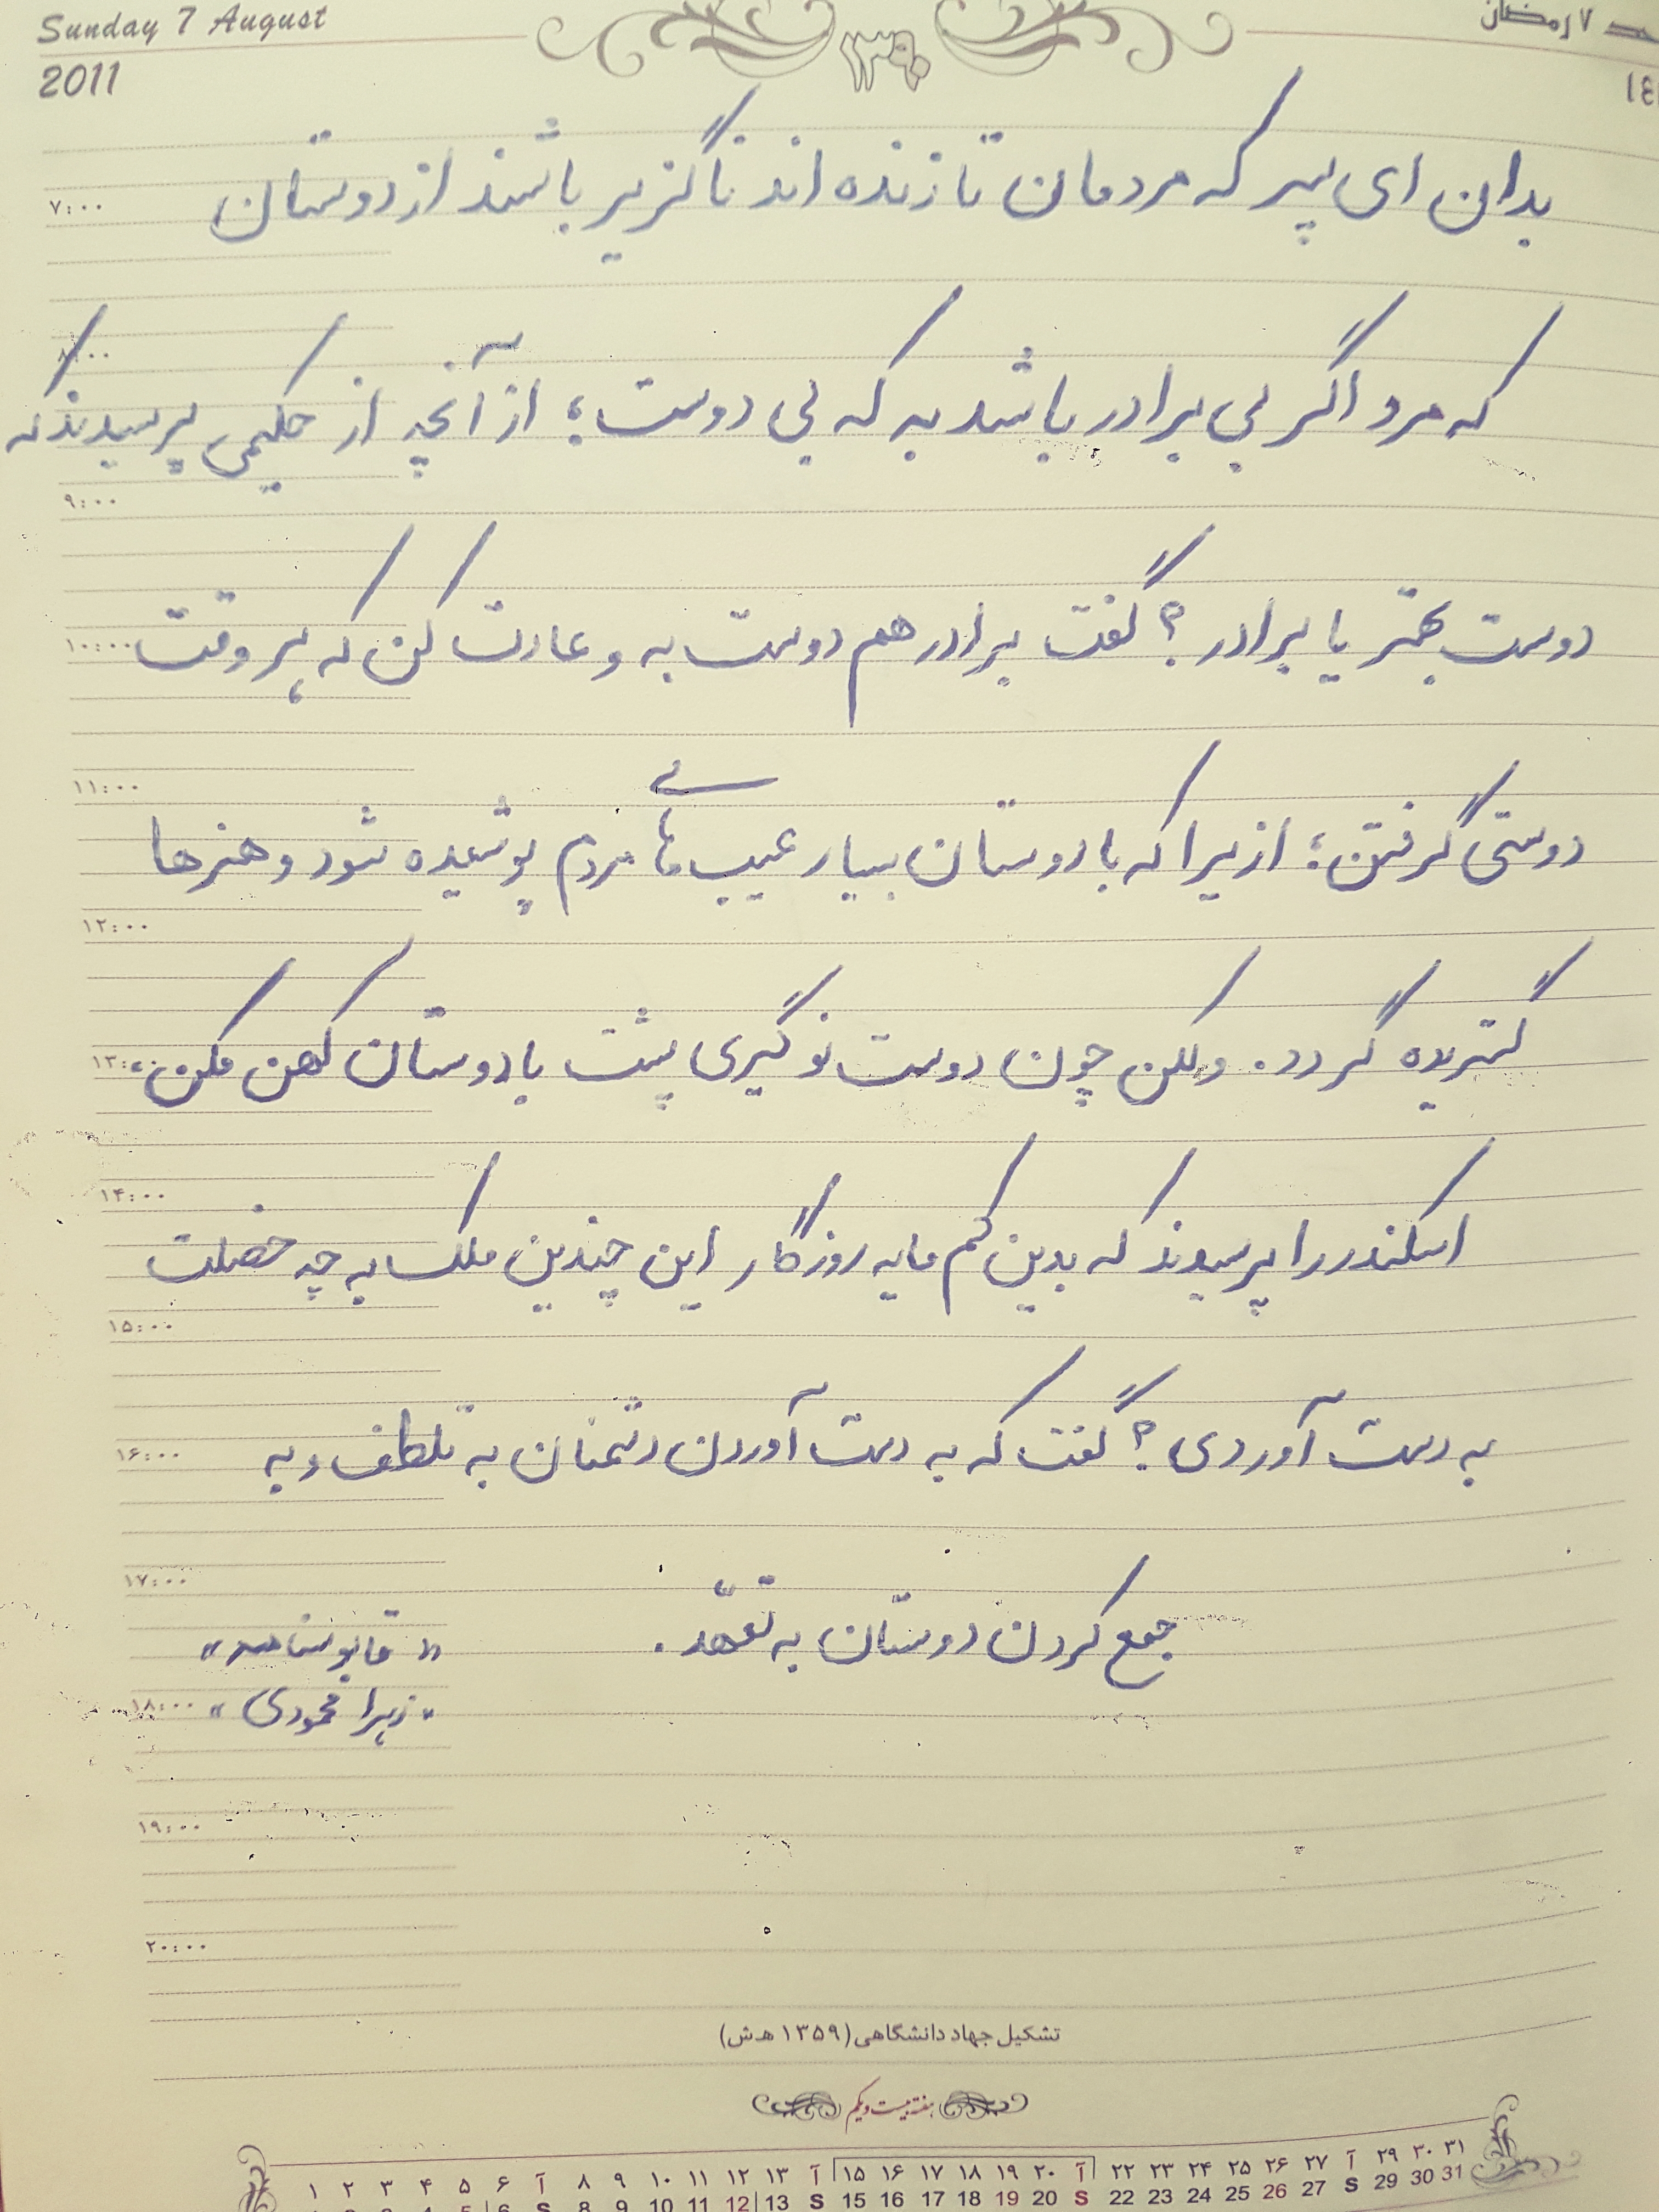 Sunday 7 August
2011
۱۳۹۰
۷ رمضان
بدان ای پسر که مردمان تا زنده اند ناگزیر باشند از دوستان
۷:۰۰
۸:۰۰
که مرد اگر بی برادر باشد به که بی دوست؛ از آنچه از حکیمی پرسیدند که
۹:۰۰
دوست بهتر یا برادر؟ گفت برادر هم دوست به و عادت کن که هر وقت
۱۰:۰۰
۱۱:۰۰
دوستی گرفتن؛ ازیرا که با دوستان بسیار عیب هاے مردم پوشیده شود و هنرها
۱۲:۰۰
گستریده گردد. ولکن چون دوست نو گیری پشت با دوستان کهن مکن،
۱۳:۰۰
۱۴:۰۰
اسکندر را پرسیدند که بدین کم مایه روزگار این چندین ملک به چه خصلت
۱۵:۰۰
به دست آوردی؟ گفت که به دست آوردن دشمنان به تلطف و به
۱۶:۰۰
۱۷:۰۰
جمع کردن دوستان به تعهّد.
« قابوسنامه »
« زهرا محمودی »
۱۸:۰۰
۱۹:۰۰
۲۰:۰۰
تشکیل جهاد دانشگاهی (۱۳۵۹ ه‍.ش)
هفته بیست و یکم
۱ ۲ ۳ ۴ ۵ ۶ آ ۸ ۹ ۱۰ ۱۱ ۱۲ ۱۳ آ ۱۵ ۱۶ ۱۷ ۱۸ ۱۹ ۲۰ آ ۲۲ ۲۳ ۲۴ ۲۵ ۲۶ ۲۷ آ ۲۹ ۳۰ ۳۱
6 S 8 9 10 11 12 13 S 15 16 17 18 19 20 S 22 23 24 25 26 27 S 29 30 31